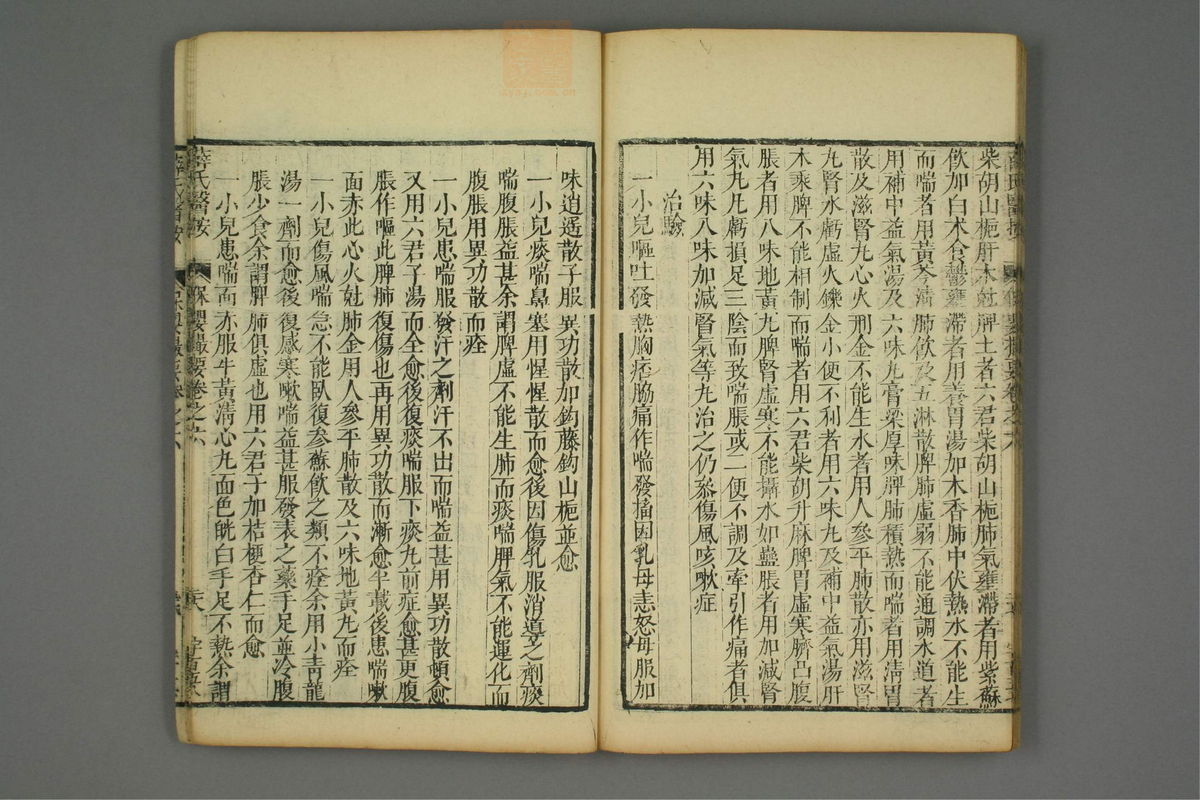 柴胡山梔肝木尅脾土者六君柴胡山梔肺氣壅滯者用紫蘇
飲加白术食鬱壅滯者用養胃湯加木香肺中伏熱水不能生
而喘者用黃芩清肺飲及五淋散脾肺虛弱不能通調水道者
用補中益氣湯及六味丸膏粱厚味脾肺積熱而喘者用清胃
散及滋腎丸心火刑金不能生水者用人參平肺散亦用滋腎
丸腎水虧虛火鑠金小便不利者用六味丸及補中益氣湯肝
木乘脾不能相制而喘者用六君柴胡升麻脾胃虛寒臍凸腹
脹者用八味地黃丸脾腎虛寒不能攝水如蠱脹者用加減腎
氣丸凡虧損足三陰而致喘脹或二便不調及牽引作痛者俱
用六味八味加減腎氣等丸治之仍叅傷風咳嗽症
治驗
一小兒嘔吐發熱胸痞脇痛作喘發搐因乳母恚怒母服加
味逍遥散子服異功散加鈎藤鈎山梔並愈
一小兒痰喘鼻塞用惺惺散而愈後因傷乳服消導之劑痰
喘腹脹益甚余謂脾虛不能生肺而痰喘脾氣不能運化而
腹脹用異功散而痊
一小兒患喘服發汗之劑汗不出而喘益甚用異功散頓愈
又用六君子湯而全愈後復痰喘服下痰丸前症愈甚更腹
脹作嘔此脾肺復傷也再用異功散而漸愈半載後患喘嗽
面赤此心火尅肺金用人參平肺散及六味地黃丸而痊
一小兒傷風喘急不能臥服參蘇飲之類不痊余用小青龍
湯一劑而愈後復感寒嗽喘益甚服發表之藥手足並冷腹
脹少食余謂脾肺俱虛也用六君子加桔梗杏仁而愈
一小兒患喘面赤服牛黃清心丸面色皝白手足不熱余謂
薛氏醫按 保嬰撮要卷之六